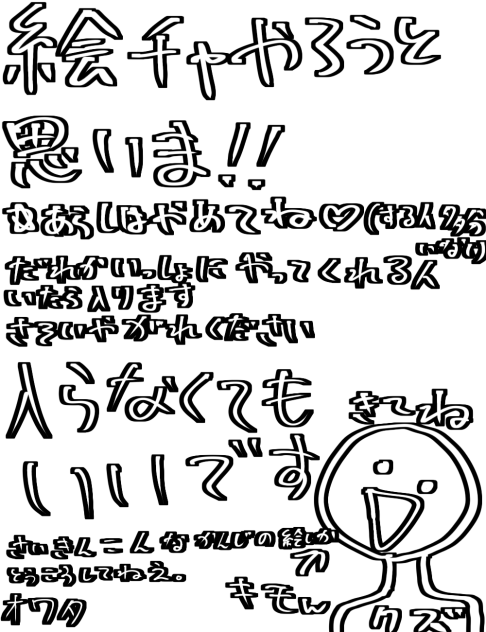 絵チャやろうと
思いま!!
※あらしはやめてね♡(する人多分
いない)
だれかいっしょに やってくれる人
いたら入ります
さそいやがれください
入らなくても
いいです
きてね
さいきんこんなかんじの絵しか
とうこうしてねえ。
オワタ
キモくん
クズ